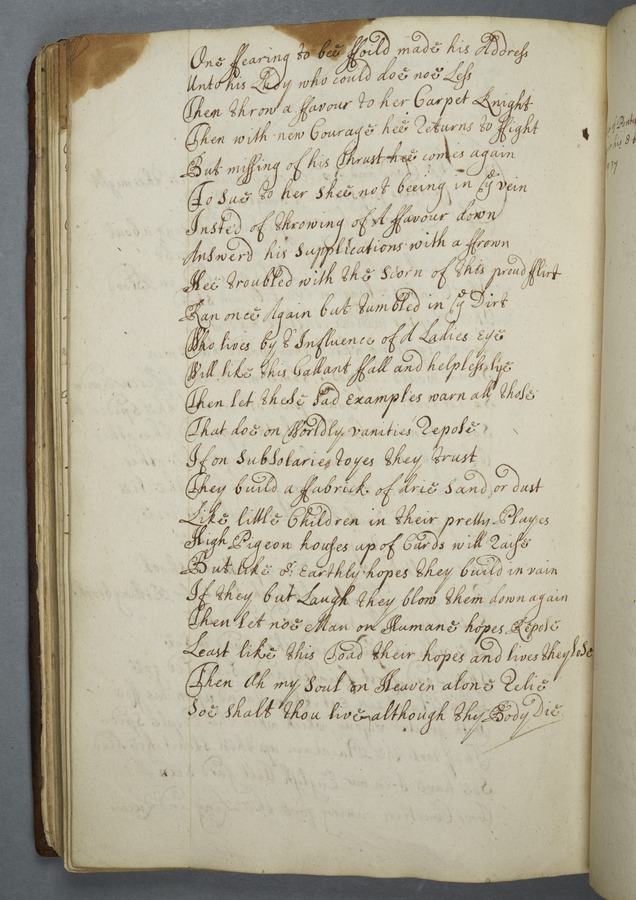 One ffearing to bee ffoild made his Address
Unto his Lady who could doe noe Less
Then throw a ffavour to her Carpet Knight
Then with new Courage hee returns to ffight
But missing of his thrust hee comes again
To sue to her shee not beeing in ye vein
Insted of throwing of A ffavour down
Answerd his supplications with a ffrown
Hee troubled with the scorn of this proud fflirt
Ran once Again but tumbled in ye Dirt
Who lives by ye Influence of A Ladies Eye
Will like this Gallant ffall and helpless lye
Then let these sad Examples warn all those
That doe on Worldly vanities repose
If on subsolaries toyes they trust
They build a ffabrick of drie sand or dust
Like little Children in their pretty Playes
High Pigeon houses up of Cards will raise
But like or Earthly hopes they build in vain
If they but Laugh they blow them down again
Then let noe Man on Humane hopes Repose
Least like this Toad their hopes and lives they lose
Then Ah my soul on Heaven alone relie
Soe shalt thou live although thy Body Die